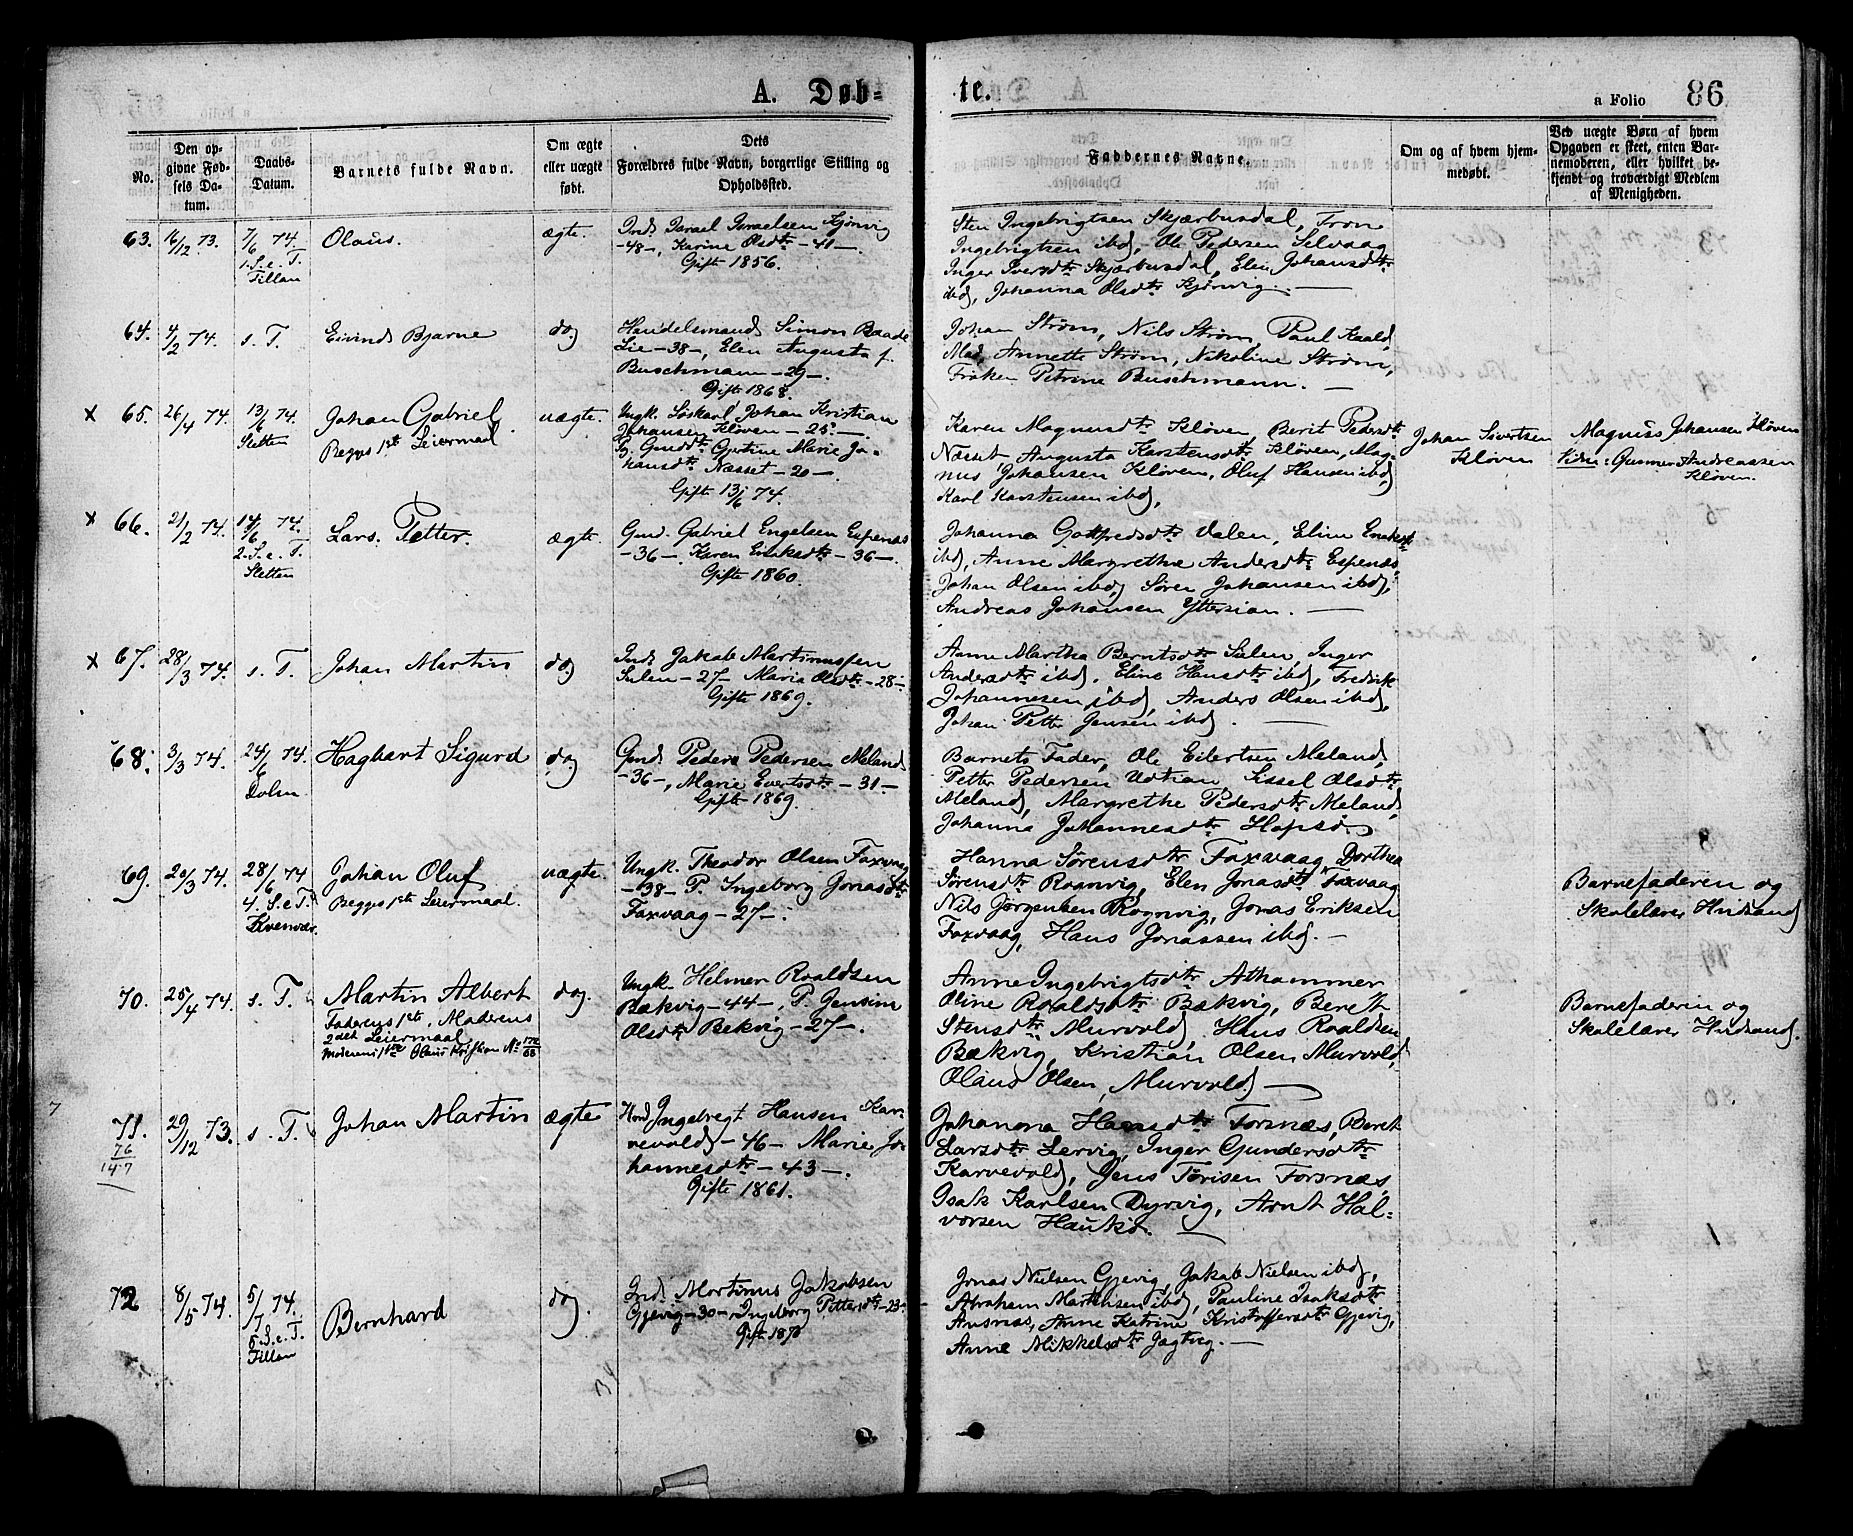 A. Døb-
te.
a Folio 86
No.
Den op-
givne Fød-
sels Da-
tum.
Daabs-
Datum.
Barnets fulde Navn.
Om ægte
eller uægte
født.
Dets
Forældres fulde Navn, borgerlige Stilling og
Opholdssted.
Faddernes Navne.
Om og af hvem hjem-
medøbt.
Ved uægte Børn af hvem
Opgaven er skeet, enten Bar-
nemoderen, eller hvilket be-
kjendt og troværdigt Medlem
af Menigheden.
63. 16/12 73. 7/6 74.
1. S. e. T.
Tillan
Olaus.
ægte.
Inds Israel Israelsen Kjønvig
-48-, Karine Olsdtr -41-
Gifte 1856.
Sten Ingebrigtsen Skjærbusdal, Tron
Ingebrigtsen ibd, Ole Pedersen Selvaag
Inger Iversdtr Skjærbusdal, Elen Johansdtr
ibd, Johanna Olsdtr Kjønvig. -
64. 4/2 74. s. T.
Eivind Bjarne
do
Handelsmand Simon Baade
Lie -38-, Elen Augusta f.
Buschmann -29-.
Gifte 1868.
Johan Strøm, Nils Strøm, Paul Kaald,
Mad. Annette Strøm, Nikoline Strøm,
Frøken Petrine Buschmann. -
x 65. 26/4 74. 13/6 74.
Sletten
Johan Gabriel
Begges 1ste Leiermaal
uægte.
Ungk. Johan Kristian
Johansen Kløven -25-
Pg. Gmdtr Gjertine Marie Jo-
hansdtr Næsset -20-
Gifte 13/6 74.
Karen Magnusdtr Kløven, Berit Pedersdtr
Næsset, Augusta Karstensdtr Kløven, Mag-
nus Johansen Kløven, Oluf Hansen ibd,
Karl Karstensen ibd,
Johan Sivertsen
Kløven
Magnus Johansen Kløven
Vidne: Gunner Andreassen
Kløven.
x 66. 21/2 74. 14/6 74.
2. S. e. T.
Sletten
Lars. Petter.
ægte.
Gmd. Gabriel Engelsen Espenæs
-36-. Karen Eriksdtr -36-
Gifte 1860.
Johanna Gottfredsdtr Valen, Eline
ibd, Anne Margrethe Andersdtr Espenæs,
Johan Olsen ibd, Søren Johansen ibd,
Andreas Johansen Yttersian. -
x 67. 28/3 74. s. T.
Johan Martin
do
Inds Jakob Martinussen
Sulen -27- Maria Olsdtr -28-
Gifte 1869.
Anne Martha Berntsdtr Sulen, Inger
Andersdtr ibd, Eline Hansdtr ibd, Fredrik
Johannesen ibd, Anders Olsen ibd,
Johan Petter Jensen ibd. -
68. 3/3 74. 24/6 74.
Dolm
Hagbart Sigurd
do
Gmd Peder Pedersen Meland
-36-, Marie Evertsdtr -31-
Gifte 1869.
Barnets Fader, Ole Eilertsen Meland,
Petter Pedersen Udtian Sissel Olsdtr
Meland, Margrethe Pedersdtr Meland,
Johanna Johannesdtr Hopsø
69. 20/3 74. 28/6 74
4. S. e. T.
Kvenvær.
Johan Oluf
Begges 1ste Leiermaal.
uægte.
Ungk. Theodor Olsen Faxvaag
-38- P. Ingeborg Jonasdtr
Faxvaag -27-.
Hanna Sørensdtr Faxvaag, Dorthea
Sørensdtr Rognvig, Elen Jonasdtr Faxvaag
Nils Jørgensen Rognvig, Jonas Eriksen
Faxvaag, Hans Jonassen ibd. -
Barnefaderen og
Skolelærer Hudsand
70. 25/4 74. s. T.
Martin Albert
Faderens 1ste, Moderens
2det Leiermaal
Moderens 1ste Olaus Kristian No 172/68
do.
Ungk. Helmer Roaldsen
Bækvig -44-, P. Jensine
Olsdtr Bekvig -27-.
Anne Ingebrigtsdtr Athammer
Oline Roaldsdtr Bækvig, Beret
Stensdtr Murvold, Hans Roaldsen
Bækvig, Kristian Olsen Murvold,
Olaus Olsen, Murvold -
Barnefaderen og
Skolelærer Hudsand.
71. 29/12 73. s. T.
76
147
Johan Martin
ægte
Ingebregt Hansen Kar-
nevold -46- Marie Jo-
hannesdtr -43-.
Gifte 1861.
Johanna Hansdtr Forsnæs, Beret
Larsdtr Lervig, Inger Gundersdtr
Karnevold, Jens Tørisen Forsnæs,
Isak Karlsen Dyrvig, Arnt Hal-
vorsen Haukø. -
72 8/5 74. 5/7 74.
5. S. e. T.
Tillan
Bernhard
do.
Ind. Martinus Jakobsen
Gjevig -30- Ingeborg Pettersdtr -23-
Gift 1870
Jonas Nielsen Gjevig, Jakob Nielsen ibd,
Abraham Martinsen ibd, Pauline Isaksdtr
Ansnæs, Anne Katrine Kristoffersdtr Gjevig,
Anne Mikkelsdtr Jagtvg. -
34